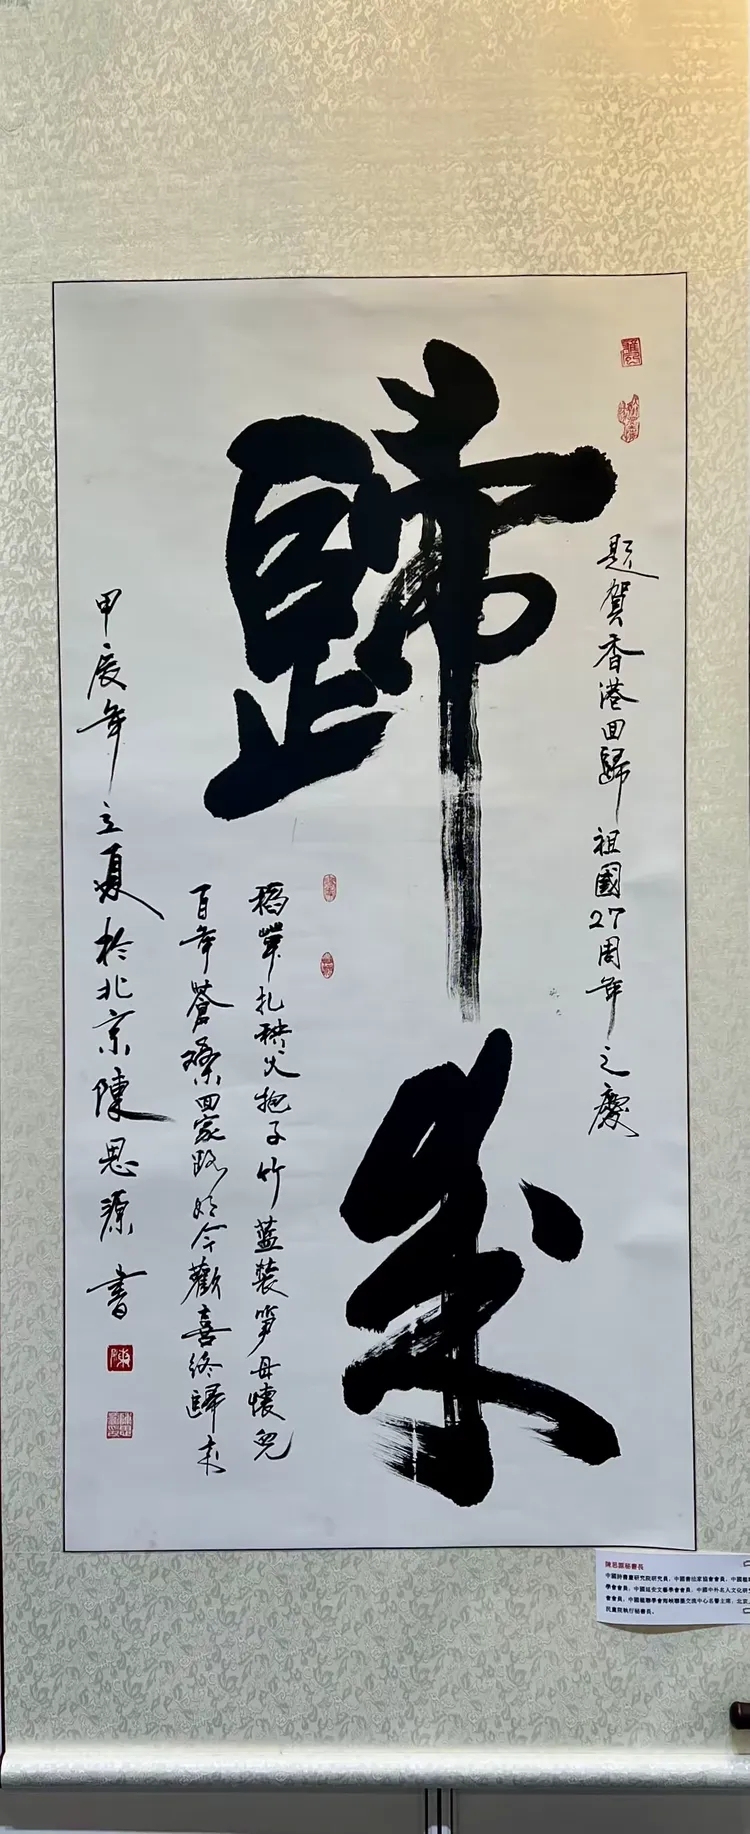 題賀香港回歸祖國27周年之慶
歸来
稻草扎秧父抱子竹蓝装笋母懷兒
百年蒼桑回家路如今歡喜終歸来
甲辰年立夏於北京陳思源書
陳
陳思源秘書長
中國詩書畫研究院研究員，中國書法家協會會員，中國楹
學會會員，中國延安文藝學會會員，中國中外名人文化研
會會員，中國楹聯學會海峽聯墨交流中心名譽主席，北京
民畫院執行秘書長。